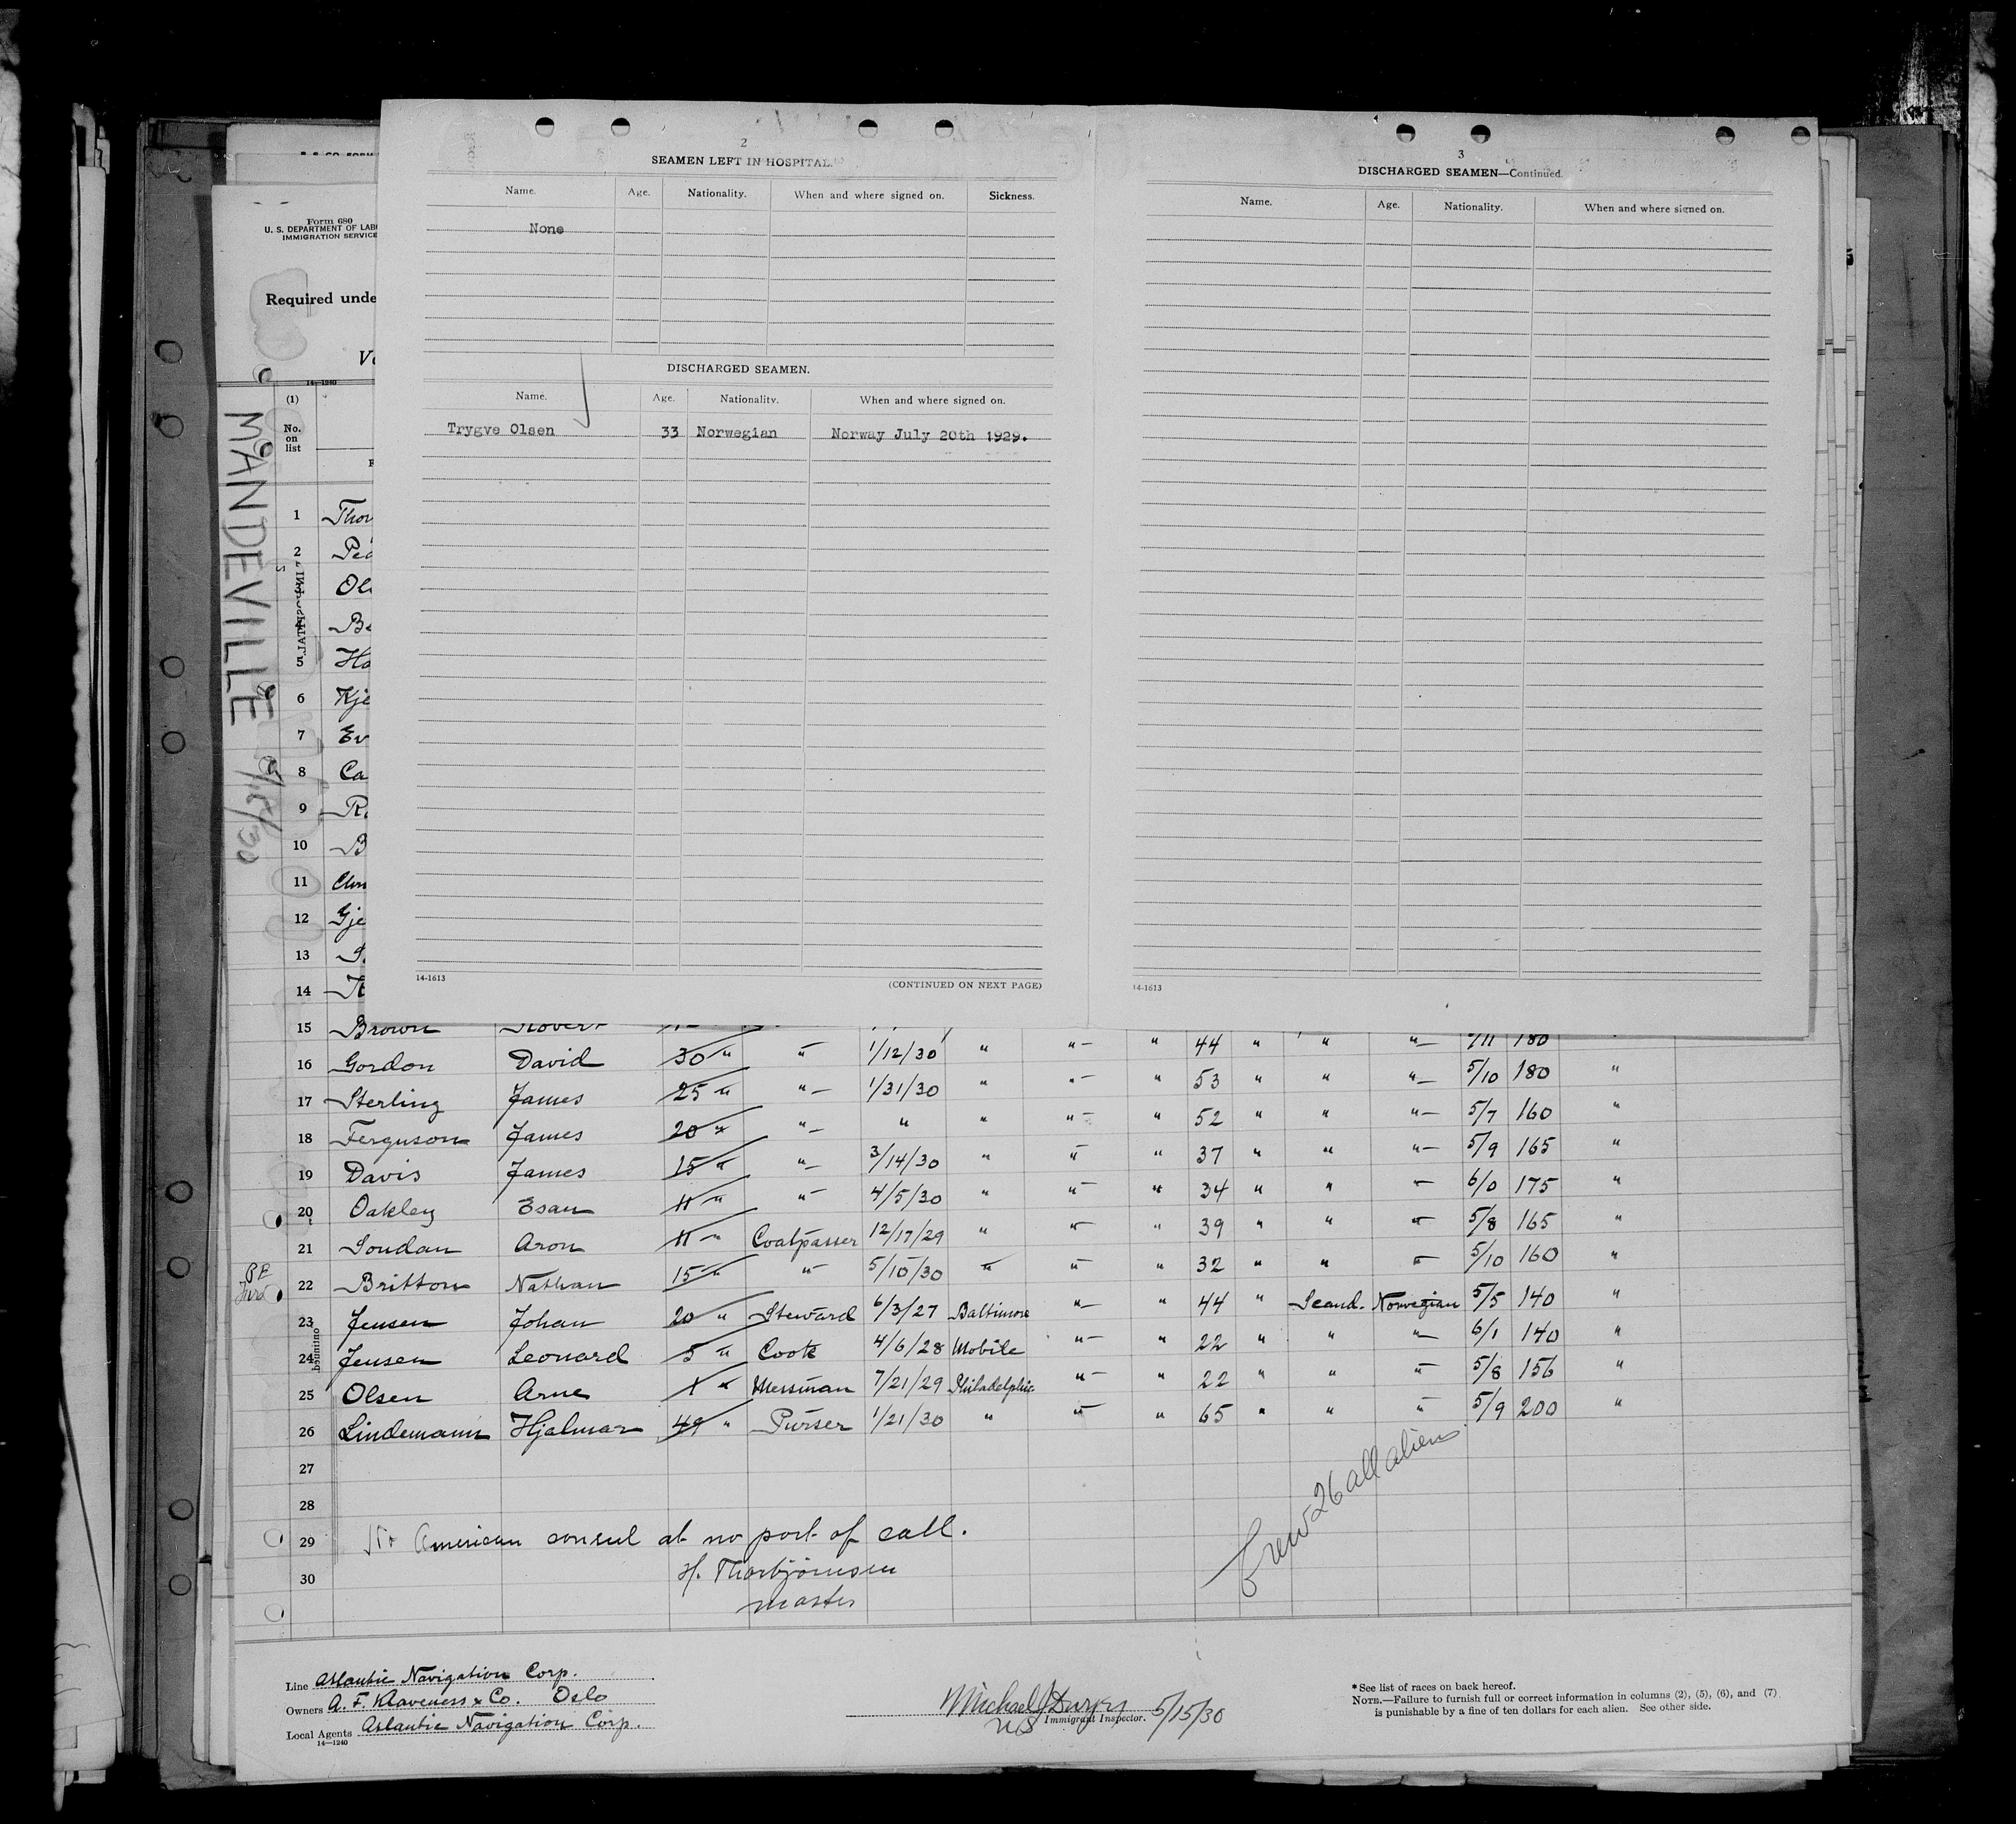 2
SEAMEN LEFT IN HOSPITAL.
Name. Age. Nationality. When and where signed on. Sickness.
None
DISCHARGED SEAMEN.
Name. Age. Nationality. When and where signed on.
Trygve Olsen 33 Norwegian Norway July 20th 1929.
14-1613
(CONTINUED ON NEXT PAGE)
3
DISCHARGED SEAMEN—Continued
Name. Age. Nationality. When and where signed on.
14-1613
Form 680
U. S. DEPARTMENT OF LAB
IMMIGRATION SERVICE
Required unde
14—1240
(1)
No.
on
list
MANDEVILLE
1 Thor
2 Ped
Ol
Be
5 Ha
6 Kje
7 Ev
8 Ca
9 R
10 B
11 Chri
12 Gje
13
14
15 Brown Robert 5/11 180
16 Gordon David 30 " " 1/12/30 " " " 44 " " " 5/10 180 "
17 Sterling James 25 " " 1/31/30 " " " 53 " " " 5/10 180 "
18 Ferguson James 20 " " " " " " 52 " " " 5/7 160 "
19 Davis James 15 " " 3/14/30 " " " 37 " " " 5/9 165 "
20 Oakley Esau 11 " " 4/5/30 " " " 34 " " " 6/0 175 "
21 Soudan Aron 11 " Coalpasser 12/17/29 " " " 39 " " " 5/8 165 "
22 Britton Nathan 15 " " 5/10/30 " " " 32 " " " 5/10 160 "
23 Jensen Johan 20 " Steward 6/3/27 Baltimore " " 44 " Scand. Norwegian 5/5 140 "
24 Jensen Leonard 5 " Cook 4/6/28 Mobile " " 22 " " " 6/1 140 "
25 Olsen Arne 1 " Messman 7/21/29 Philadelphia " " 22 " " " 5/8 156 "
26 Lindemann Hjalmar 49 " Purser 1/21/30 " " " 65 " " " 5/9 200 "
27
28
29 No American consul at no port of call.
30 H. Thorbjörnsen
master
Crew 26 all aliens
Line Atlantic Navigation Corp.
Owners A. F. Klaveness & Co. Oslo
Local Agents Atlantic Navigation Corp.
14—1240
Michael J Duryes 5/15/30
Immigrant Inspector.
*See list of races on back hereof.
NOTE.—Failure to furnish full or correct information in columns (2), (5), (6), and (7)
is punishable by a fine of ten dollars for each alien. See other side.